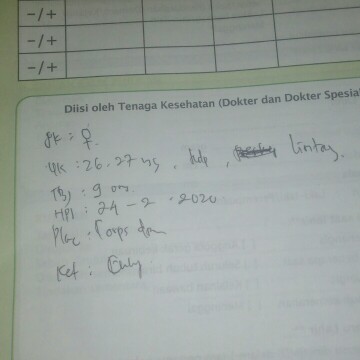 -/+
-/+
-/+
Diisi oleh Tenaga Kesehatan (Dokter dan Dokter Spesial
JK : ♀
UK : 26-27 mg , hdp , lintang
TBJ : 9
HPL : 24 - 2 - 2020
Plac : Corpus
Ket :